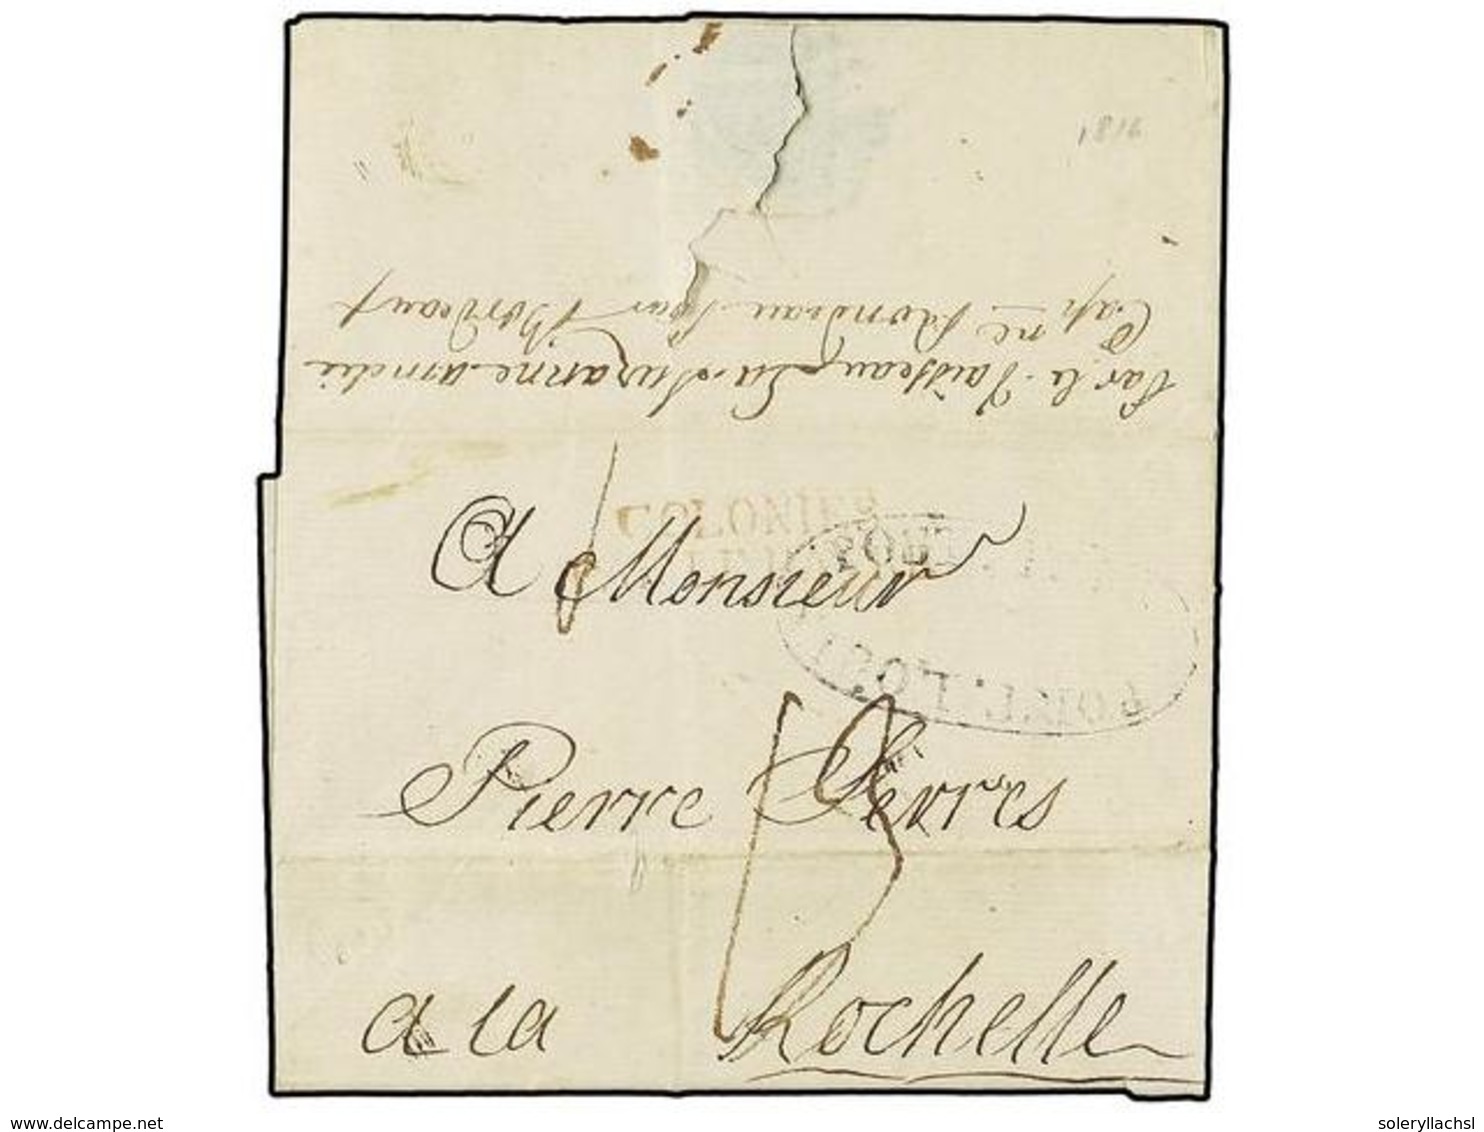 1816
Par le Vaisseau La Suzanne amdie
Cap ne Rondeau Pour Bordeaux
COLONIES
PORT
A Monsieur
PORT.
Pierre Serres
13
a la Rochelle
www.delcampe.net
soleryllachsl